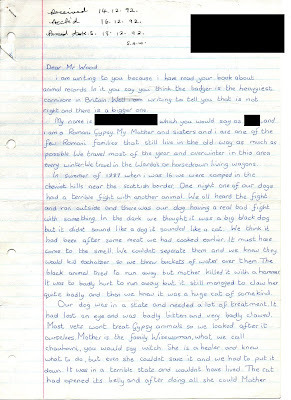 Received 14.12.92.
Ack'd 16.12.92.
Dear Mr Wood
i am writing to you because i have read your book about
animal records. In it you say you think the badger is the heaviest
carnivore in Britain. writing to tell you that is not
right and there is a bigger one.
My name is which you would say as and
i am a Romani Gypsy. My Mother and sisters and i are one of the
few Romani families that still live in the old way as much as
possible. We travel most of the year and overwinter in this area
every winter. We travel in the Wardos or horsedrawn living wagons.
In summer of 1989 when i was 16 we were camped in the
cheviot hills near the scottish border. One night one of our dogs
had a terrible fight with another animal. We all heard the fight
and ran outside and there was our dog having a real bad fight
with something. In the dark we thought it was a big black dog
but it didnt sound like a dog it sounded like a cat. We think it
had been after some meat we had cooked earlier. It must have
come to the smell. We couldnt separate them and we knew they
would kill eachother so we threw buckets of water over them. The
black animal tried to run away but mother killed it with a hammer.
It was to badly hurt to run away but it still managed to claw her
quite badly and then we knew it was a huge cat of some kind.
Our dog was in a state and needed a lot of treatment. It
had lost an eye and was badly bitten and very badly clawed.
Most vets wont treat Gypsy animals so we looked after it
ourselves. Mother is the family Wisewoman, what we call
you would say witch. She is a healer and knew
what to do, but even she couldnt save it and we had to put it
down. It was in a terrible state and wouldnt have lived. The cat
had opened its belly and after doing all she could Mother